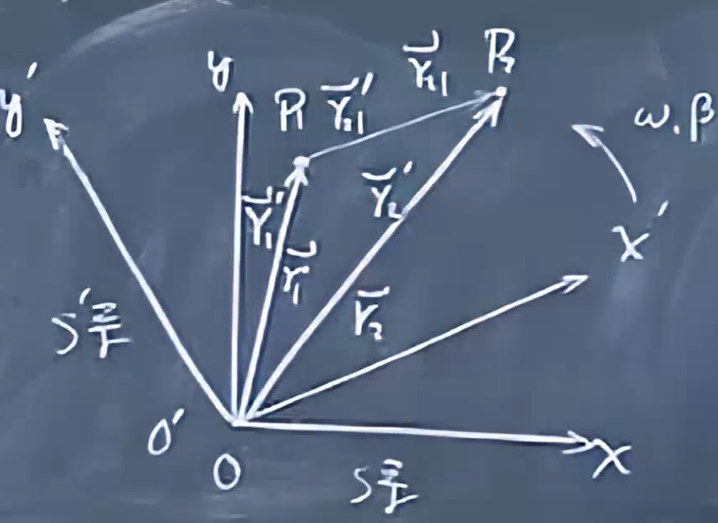 y'
y
P₁
r⃗₂₁'
r⃗₂₁
P₂
ω.β
r⃗₁'
r⃗₁
r⃗₂'
r⃗₂
x'
S'系
O'
O
S系
x